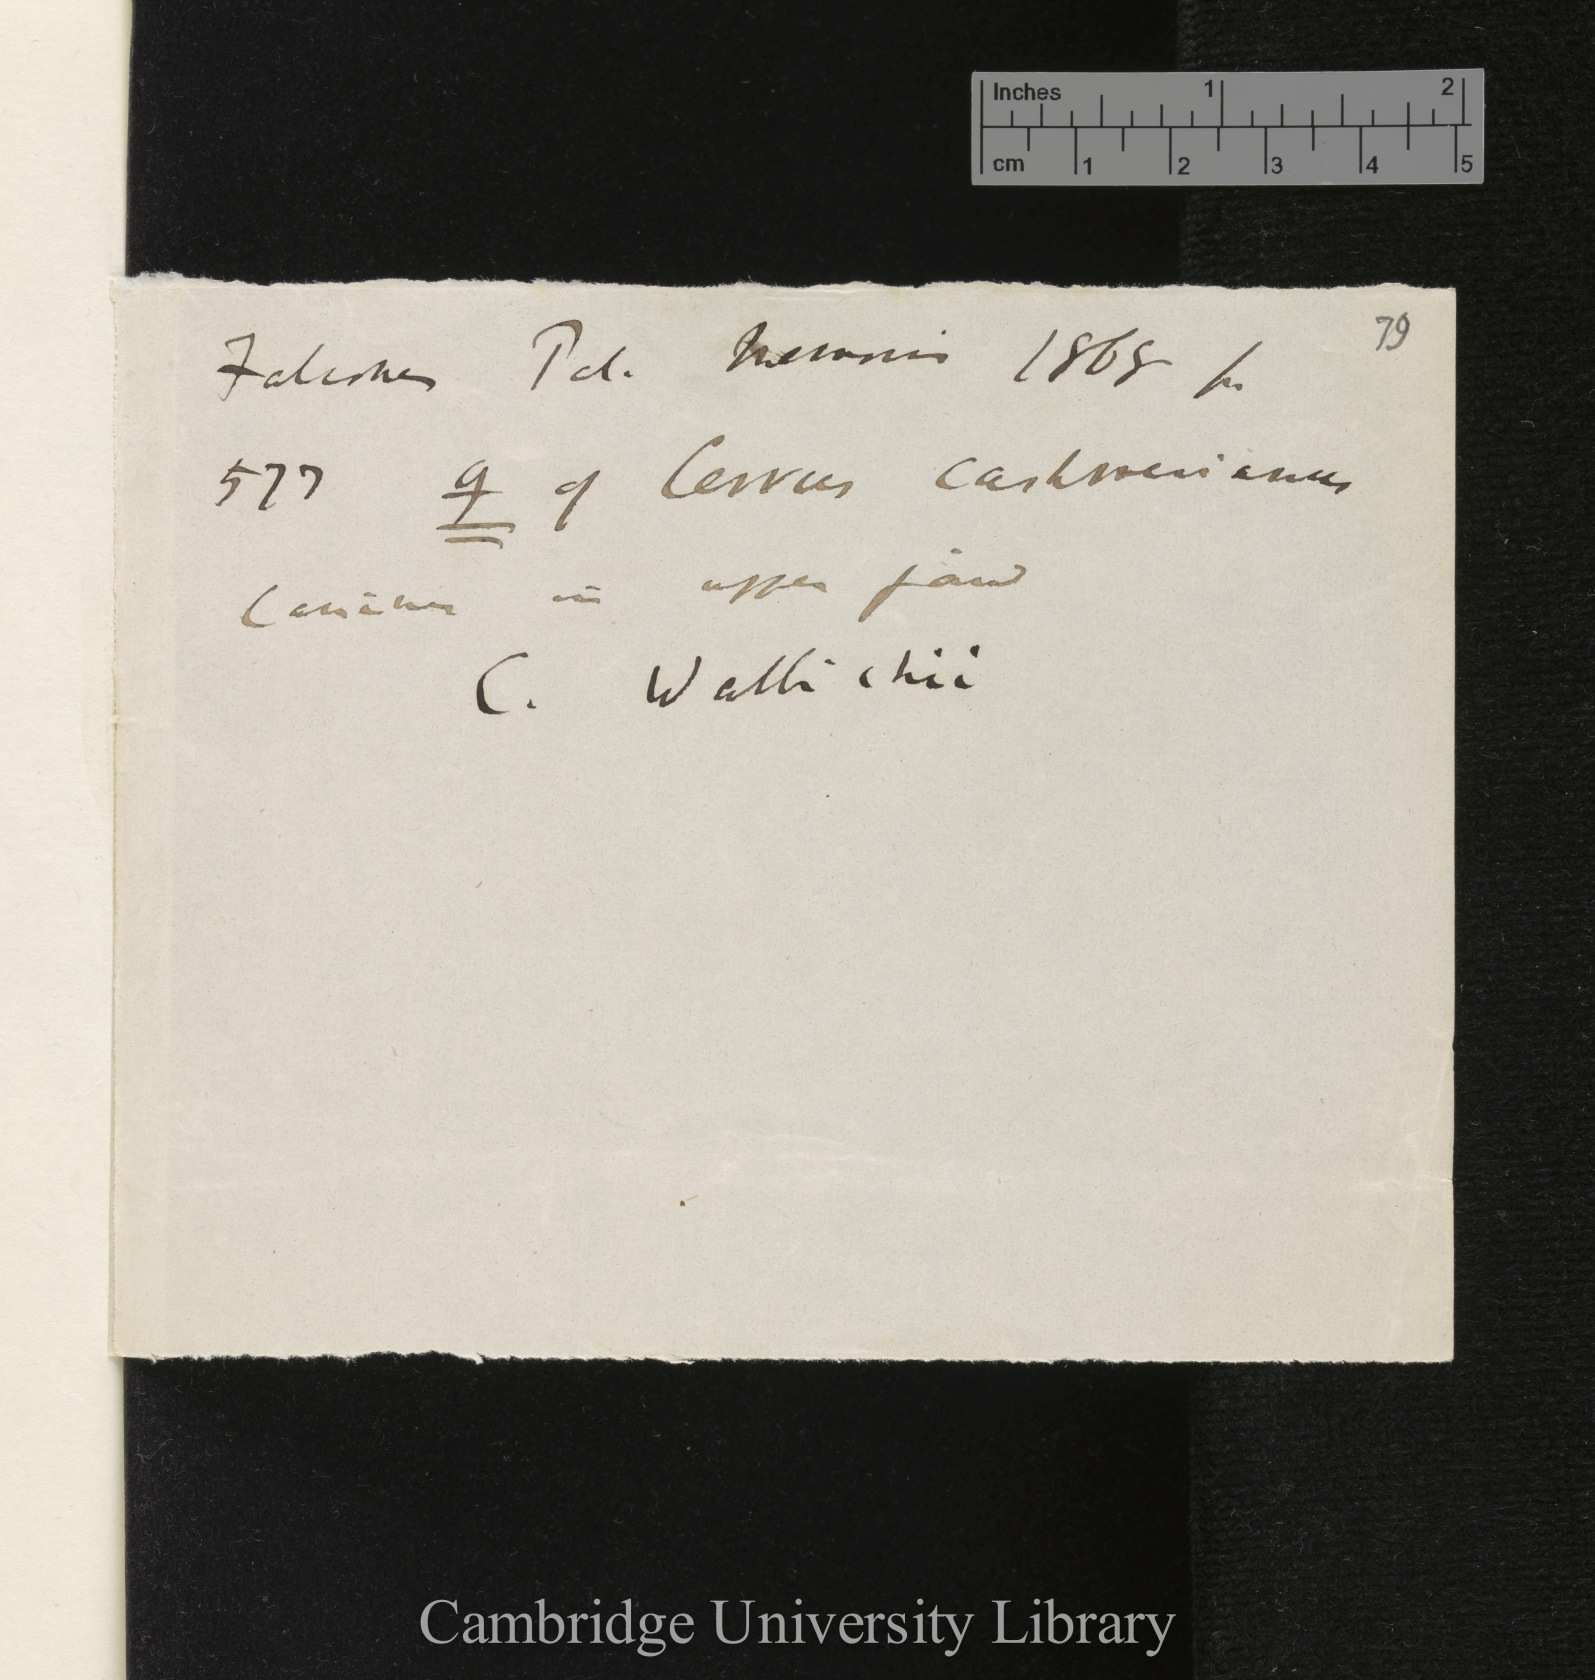 Inches 1 2
cm 1 2 3 4 5
79
Falconer Pal. Memoirs 1868 p.
577 ♀ of Cervus cashmerianus
Canines in upper jaw
C. Wallichii
Cambridge University Library